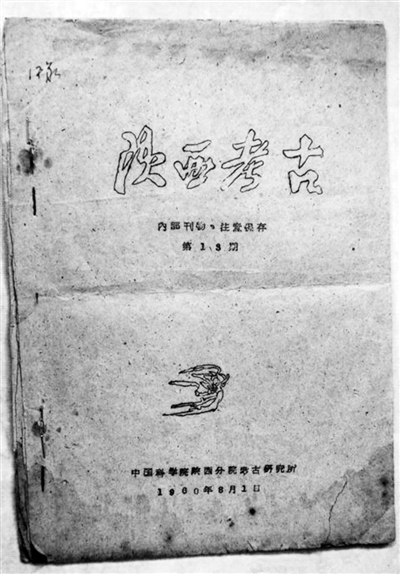 陕西考古
内部刊物,注意保存
第13期
中国科学院陕西分院考古研究所
1960年8月1日